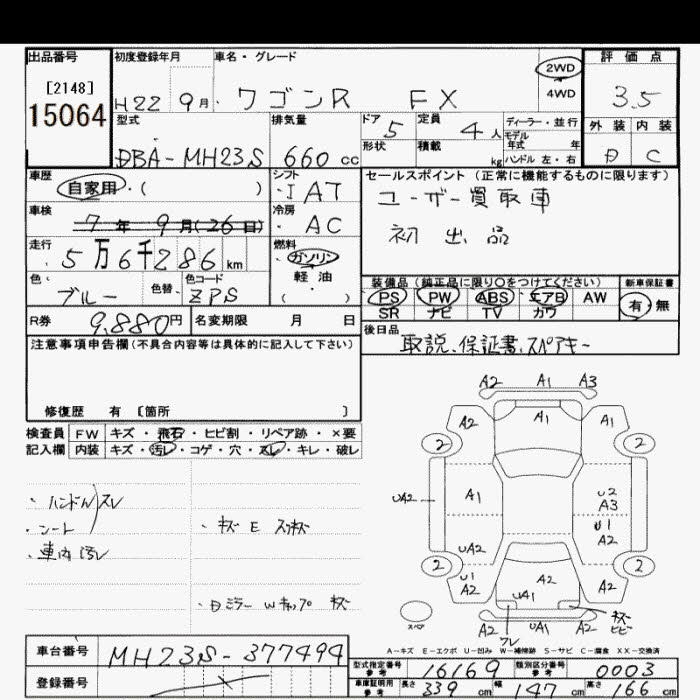 出品番号 初度登録年月 車名・グレード 評価点
[2148] 15064
H22 9月 ワゴンR FX 2WD 4WD 3.5
型式 排気量 ドア 5 定員 4人 ディーラー・並行 外装 内装
モデル年式 年
DBA-MH23S 660cc 形状 積載 kg ハンドル 左・右 D C
車歴 シフト セールスポイント(正常に機能するものに限ります)
自家用・( ) ・I AT ユーザー買取車
車検 冷房
7年9月(26日) ・AC 初出品
走行 燃料
5万6千286km ガソリン
軽・油
・( )
色・ 色替・ 色コード 装備品(純正品に限り〇をつけてください) 新車保証書
ブルー ZPS PS PW ABS エアB AW 有・無
SR ナビ TV カワ
R券 9,880円 名変期限 月 日 後日品
取説、保証書、スペアキー
注意事項申告欄(不具合内容等は具体的に記入して下さい)
修復歴 有 〔箇所 〕
検査員 FW キズ・飛石・ヒビ割・リペア跡・×要
記入欄 内装 キズ・汚レ・コゲ・穴・スレ・キレ・破レ
・ハンドルスレ
・シート
・車内汚レ
・キズ E スリキズ
A2 A1 A3
A2 A1 A1
2 2
UA2 A1 U2
A3
U1
UA2 A2
2 2
U1
A2 A2 A2
UA1
A2 ワレ UA1 A2 キズ
ヒビ
スペア
A-キズ E-エクボ U-凹み W-補修跡 S-サビ C-腐食 XX-交換済
車台番号 MH23S-377494
登録番号
型式指定番号 参考 16169 類別区分番号 参考 0003
車庫証明用 参考 長さ 339cm 幅 147cm 高さ 166cm